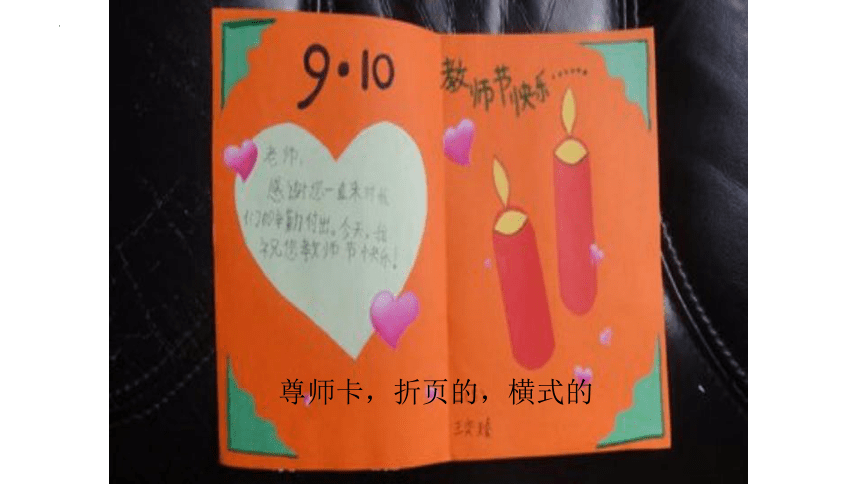 9·10
教师节快乐……
老师,
感谢您一直来对我
们的辛勤付出。今天,我
祝您教师节快乐!
尊师卡，折页的，横式的